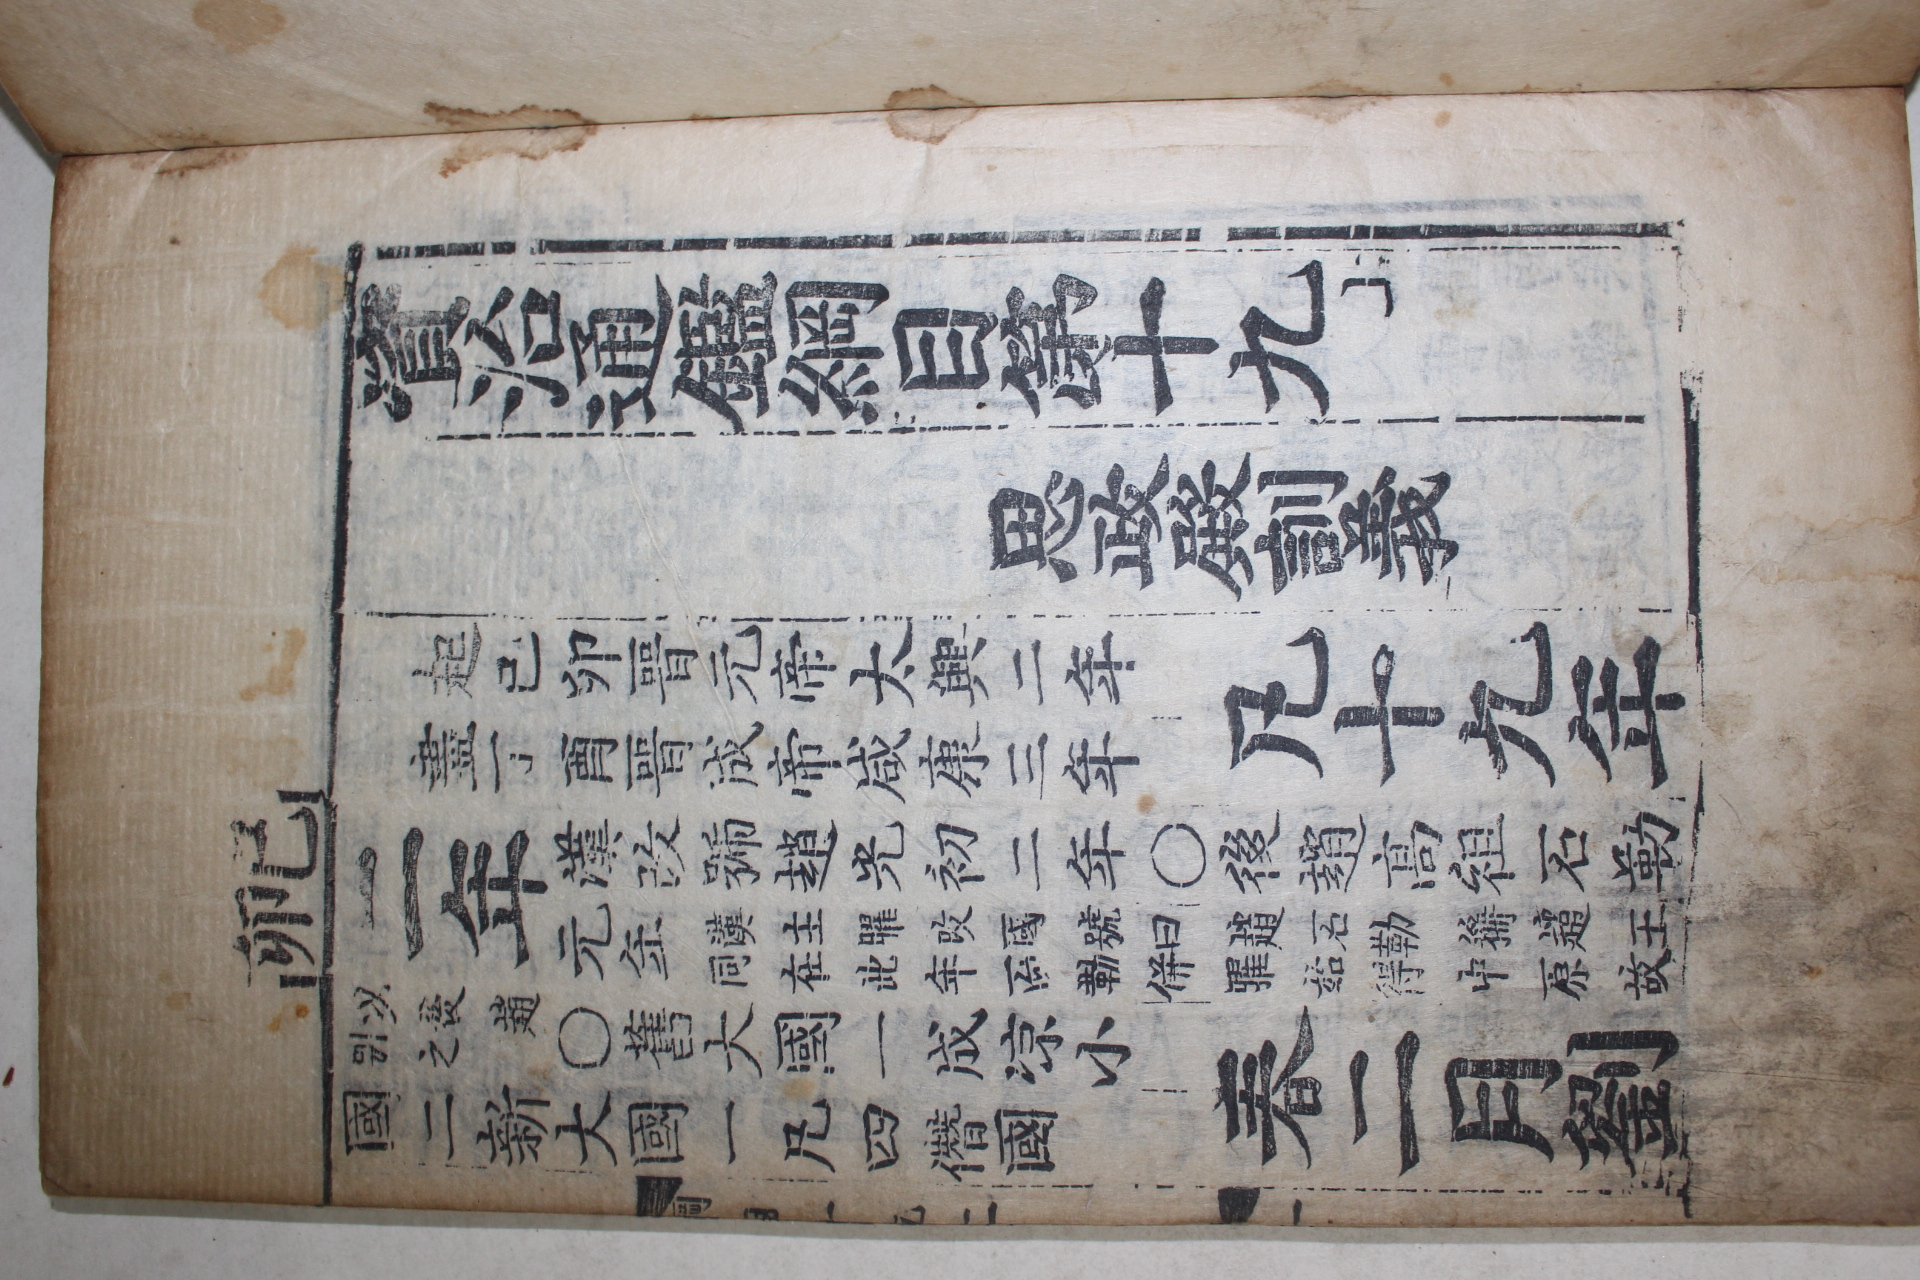 資治通鑑綱目第十九
思政殿訓義
起己卯晉元帝太興二年
盡丁酉晉成帝咸康三年
凡十九年
己卯
二年
漢改號趙光初二年○後趙高祖石勒
元年
漢主曜改國號曰趙石勒稱趙王
同在此年而勒併曜始得中原故
以後趙
別之
○舊大國一成涼小
國二新大國一凡四僭國
春二月劉